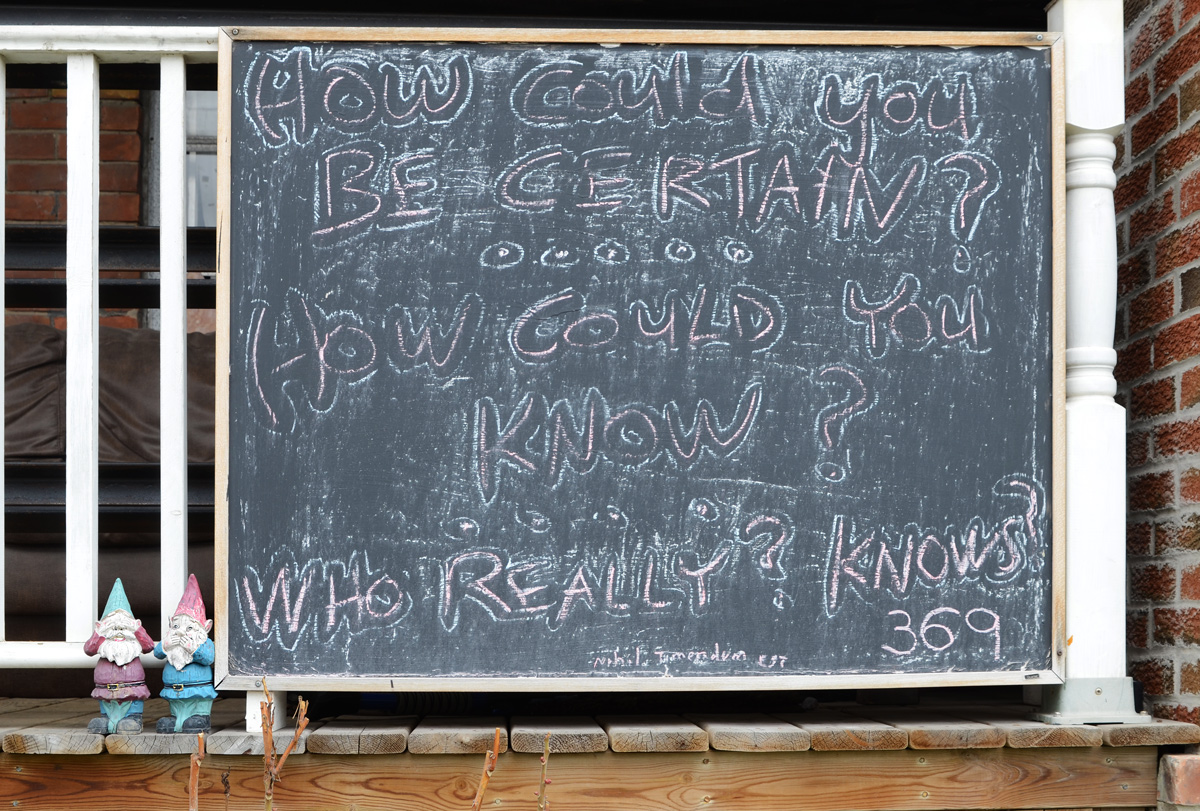 HOW COULD YOU
BE CERTAIN?
HOW COULD YOU
KNOW?
WHO REALLY? KNOWS?
369
Nihil Timendum EST